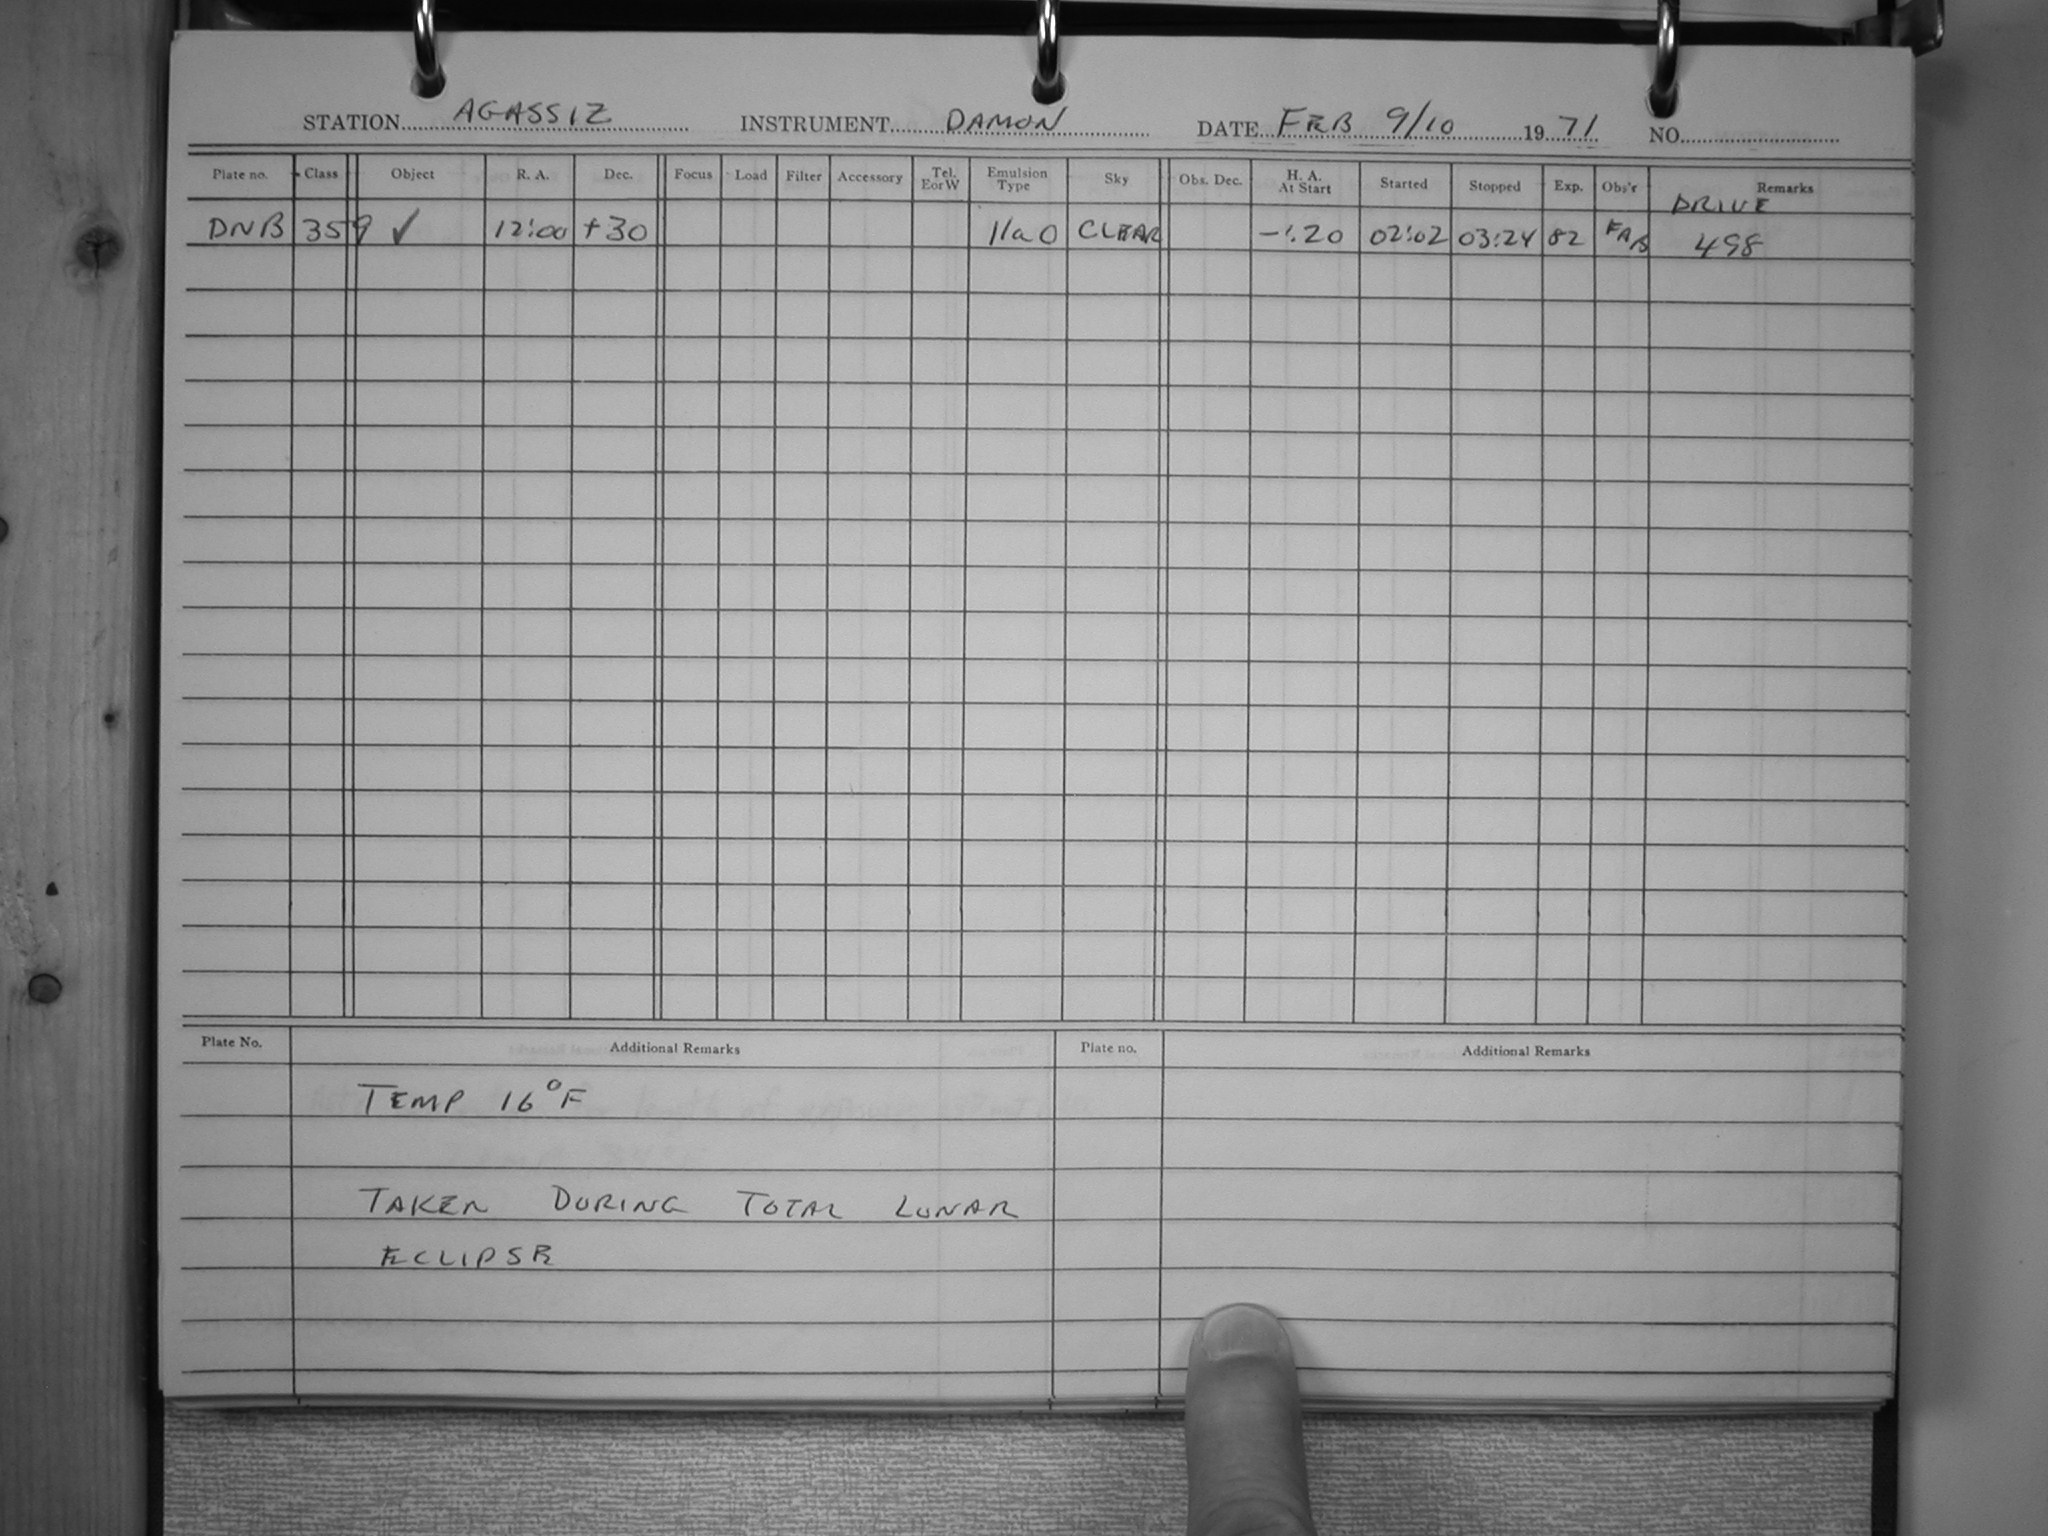 STATION AGASSIZ INSTRUMENT DAMON DATE FEB 9/10 1971 NO.
Plate no. Class Object R. A. Dec. Focus Load Filter Accessory Tel. E or W Emulsion Type Sky Obs. Dec. H. A. At Start Started Stopped Exp. Obs'r Remarks
DRIVE
DNB 359 ✓ 12:00 +30 IIaO CLEAR -:20 02:02 03:24 82 FAB 498
Plate No. Additional Remarks Plate no. Additional Remarks
TEMP 16°F
TAKEN DURING TOTAL LUNAR
ECLIPSE